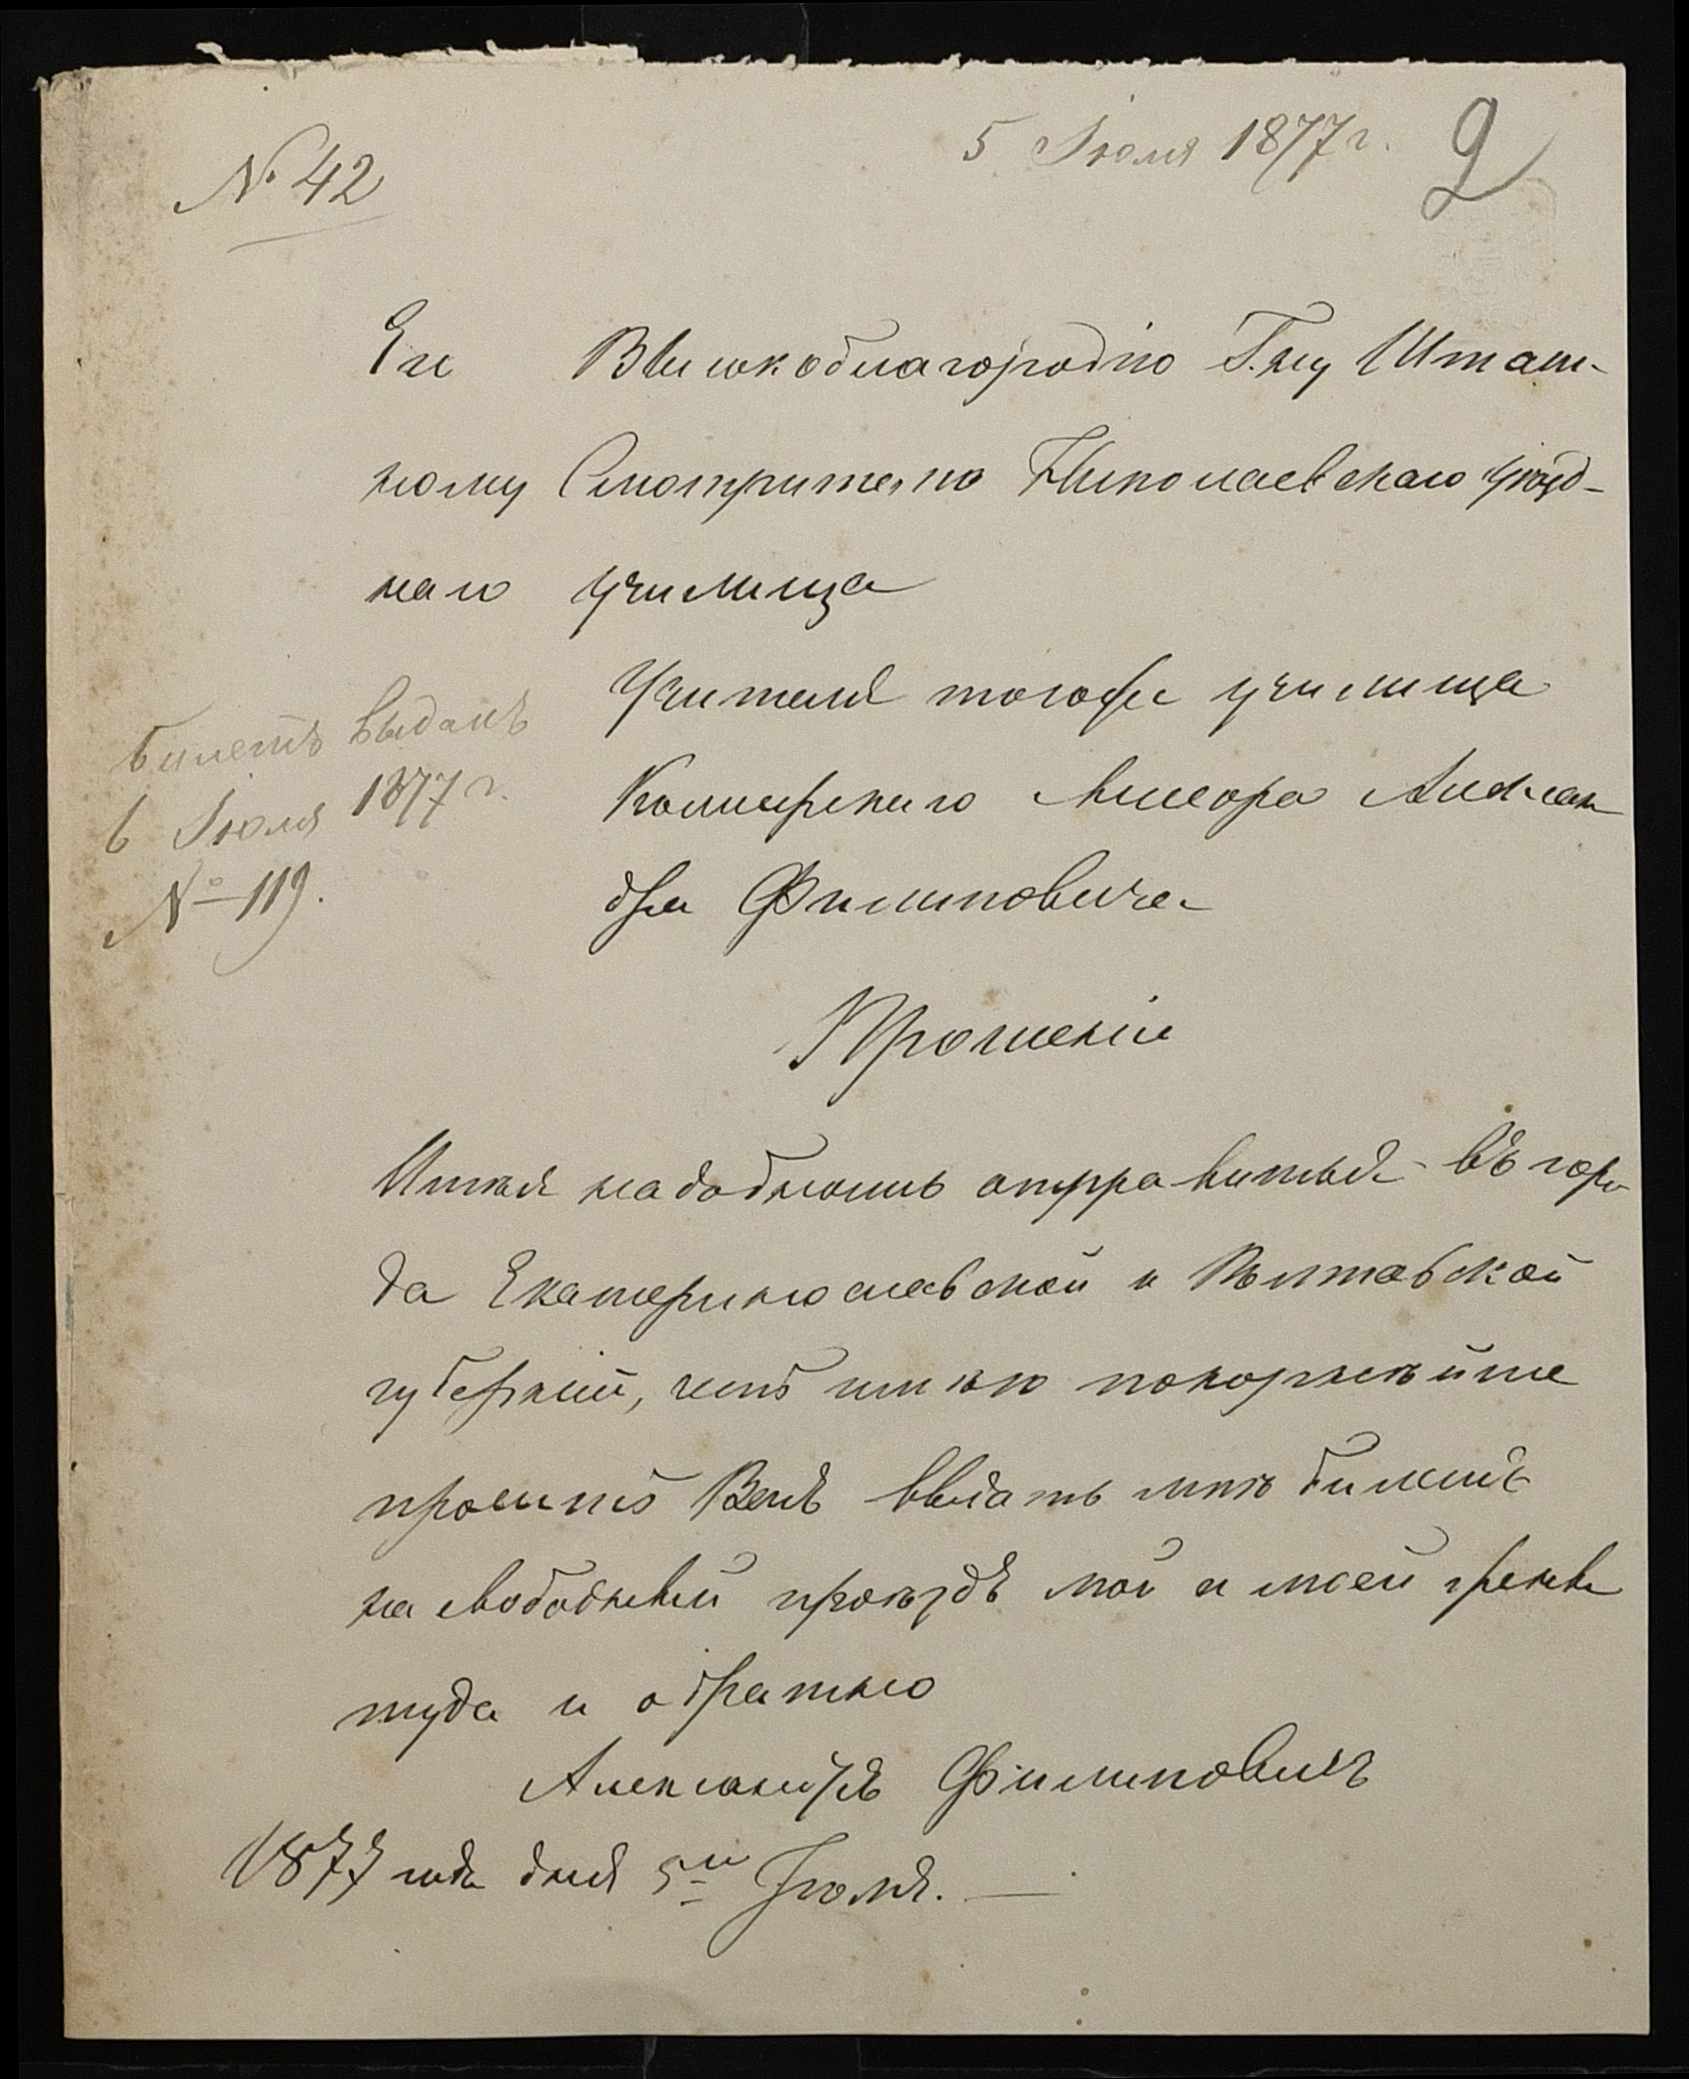 № 42
5 Іюля 1877 г.
2
Его Высокоблагородію Г.ну Штат-
ному Смотрителю Николаевскаго уѣзд-
наго училища
Учителя тогоже училища
Колежскаго Асесора Алексан
дра Филиповича
билетъ выданъ
6 Іюля 1877 г.
№ 119.
Прошеніе
Имѣя надобность отправиться въ горо
да Екатеринославской и Полтавской
губерній, честь имѣю покорнѣйше
просить Васъ выдать мнѣ билетъ
на свободный проѣздъ мой и моей жены
туда и обратно
Александръ Филиповичъ
1877 года дня 5го Іюля.